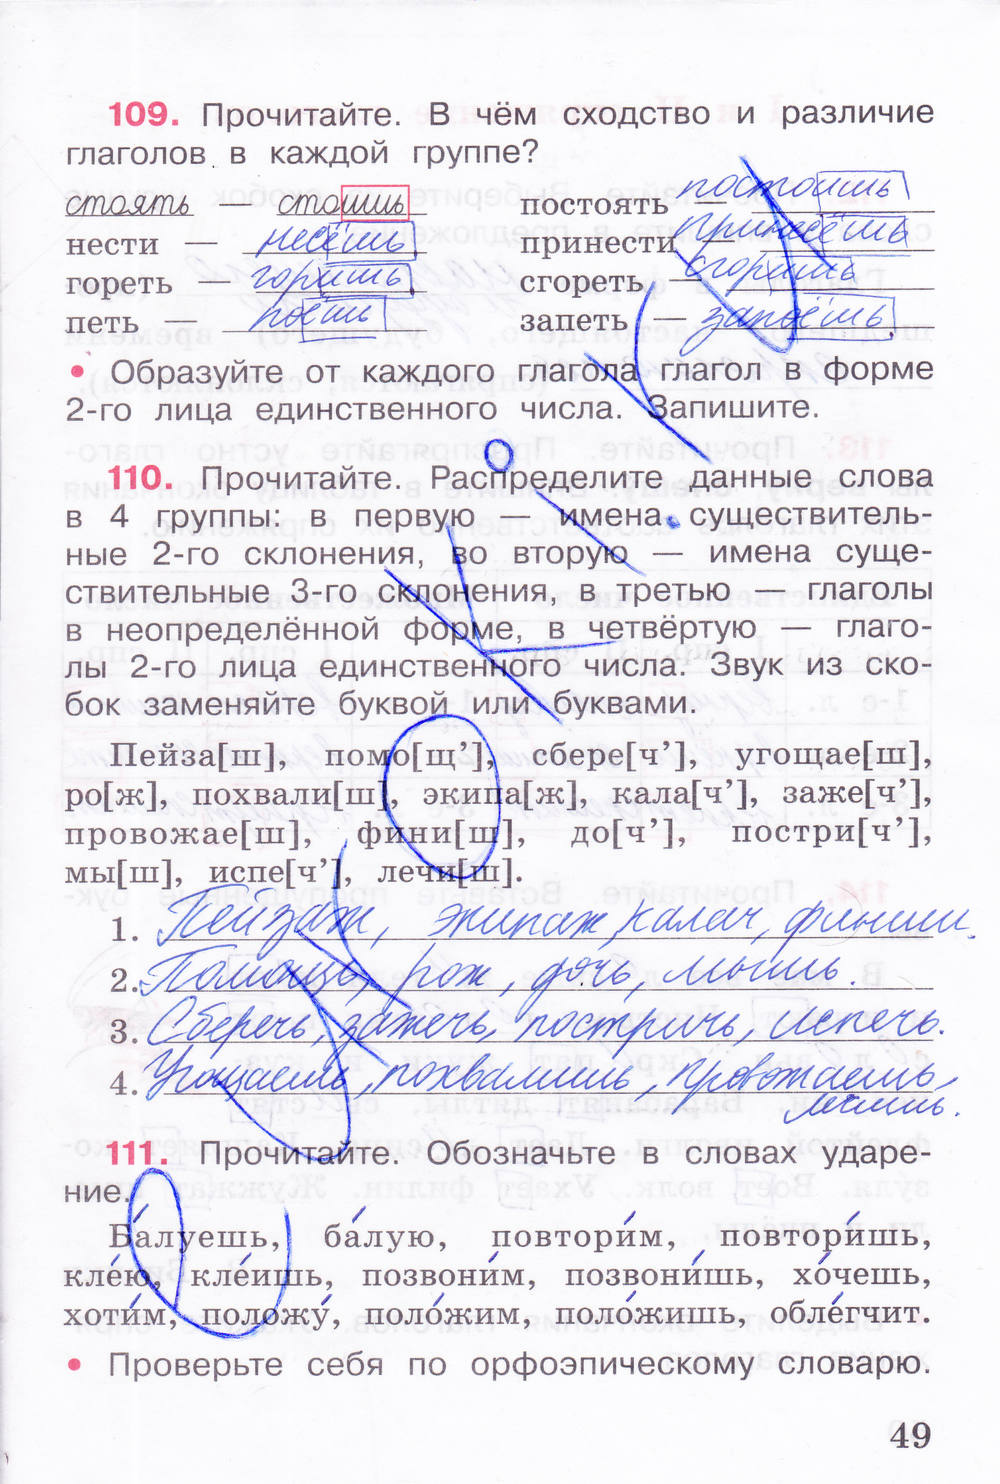 109. Прочитайте. В чём сходство и различие
глаголов в каждой группе?
стоять — стоишь постоять — постоишь
нести — несёшь принести — принесёшь
гореть — горишь сгореть — сгоришь
петь — поёшь запеть — запоёшь
• Образуйте от каждого глагола глагол в форме
2-го лица единственного числа. Запишите.
110. Прочитайте. Распределите данные слова
в 4 группы: в первую — имена существитель-
ные 2-го склонения, во вторую — имена суще-
ствительные 3-го склонения, в третью — глаголы
в неопределённой форме, в четвёртую — глаго-
лы 2-го лица единственного числа. Звук из ско-
бок заменяйте буквой или буквами.
Пейза[ш], помо[щ’], сбере[ч’], угощае[ш],
ро[ж], похвали[ш], экипа[ж], кала[ч’], заже[ч’],
провожае[ш], фини[ш], до[ч’], постри[ч’],
мы[ш], испе[ч’], лечи[ш].
1. Пейзаж, экипаж, калач, финиш.
2. Помощь, рож, дочь, мышь.
3. Сберечь, зажечь, постричь, испечь.
4. Угощаешь, похвалишь, провожаешь,
лечишь.
111. Прочитайте. Обозначьте в словах ударе-
ние.
Ба́луешь, ба́лую, повтори́м, повтори́шь,
кле́ю, кле́ишь, позвони́м, позвони́шь, хо́чешь,
хоти́м, положу́, поло́жим, поло́жишь, обле́гчит.
• Проверьте себя по орфоэпическому словарю.
49